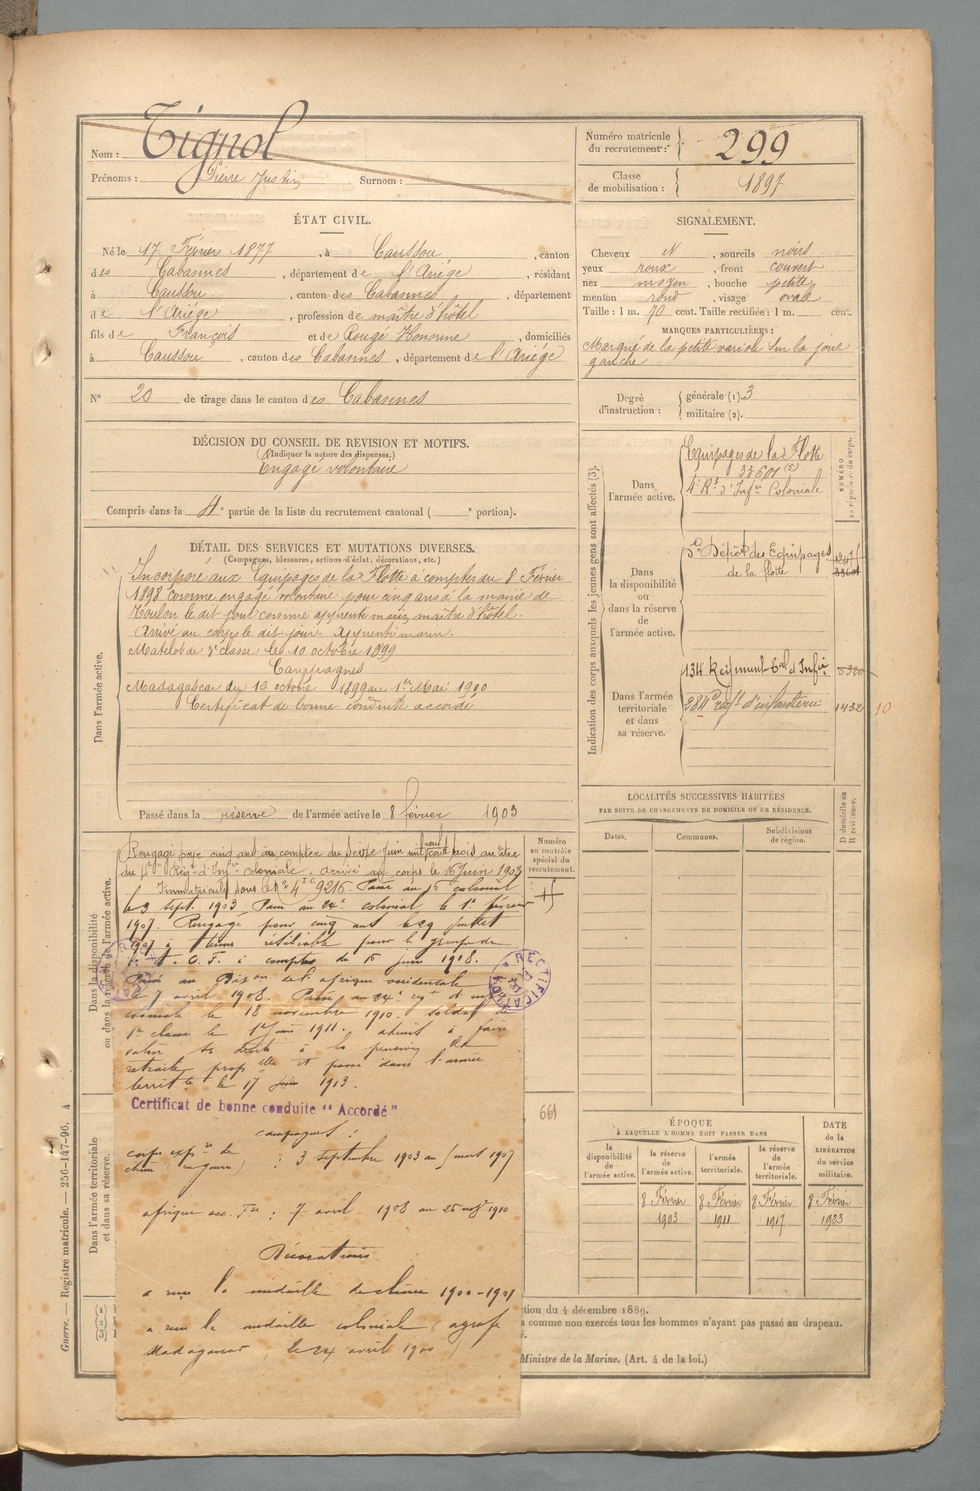 Nom : Tignol
Prénoms : Pierre Justin Surnom :
Numéro matricule du recrutement : 299
Classe de mobilisation : 1897
ÉTAT CIVIL.
Né le 17 Février 1877, à Caussou, canton
des Cabannes, département de l'Ariége, résidant
à Caussou, canton des Cabannes, département
de l'Ariége, profession de maître d'hôtel
fils de François et de Rougé Honorine, domiciliés
à Caussou, canton des Cabannes, département de l'Ariége
N° 20 de tirage dans le canton des Cabannes
SIGNALEMENT.
Cheveux N, sourcils noirs
yeux roux, front couvert
nez moyen, bouche petite
menton rond, visage ovale
Taille : 1 m. 70 cent. Taille rectifiée : 1 m. cent.
MARQUES PARTICULIÈRES :
Marqué de la petite variole sur la joue
gauche
Degré d'instruction : générale (1). 3
militaire (2).
DÉCISION DU CONSEIL DE REVISION ET MOTIFS.
(Indiquer la nature des dispenses.)
Engagé volontaire
Compris dans la 4e partie de la liste du recrutement cantonal ( e portion).
DÉTAIL DES SERVICES ET MUTATIONS DIVERSES.
(Campagnes, blessures, actions d'éclat, décorations, etc.)
Dans l'armée active.
Incorporé aux Equipages de la Flotte à compter du 8 Février
1898 comme engagé volontaire pour cinq ans à la mairie de
Toulon le dit jour comme apprenti marin maître d'hôtel.
Arrivé au corps le dit jour. Apprenti marin.
Matelot de 3e classe le 10 octobre 1899
Campagnes
Madagascar du 13 octobre 1899 au 1er Mai 1900
Certificat de bonne conduite accordé
Passé dans la réserve de l'armée active le 8 février 1903
Dans la disponibilité ou dans la réserve de l'armée active.
Rengagé pour cinq ans à compter du seize Juin mil neuf cent trois au titre
du 4e Régt d'Infrie coloniale. Arrivé au corps le 16 Juin 1903
Immatriculé sous le n° 4 IC 9216. Passé au 16e colonial
le 3 sept. 1903. Passé au 24e colonial le 1er février
1907. Rengagé pour cinq ans le 29 juillet
1907 à terme résiliable pour le groupe de
O. F. à compter du 16 juin 1908.
Passé au Baon de l'afrique occidentale
le 7 avril 1908. Passé au 24e regt d'infie
coloniale le 18 novembre 1910. soldat de
1re classe le 1er 1911. admis à faire
valoir ses droits à la pension de
retraite propelle et passé dans l'armée
territle le 17 juin 1913.
Certificat de bonne conduite " Accordé "
campagnes :
corps expre de
chine (en guerre) : 3 Septembre 1903 au 1 mars 1907
afrique occ. Fse : 7 avril 1908 au 25 novbre 1910
Décorations
a reçu la médaille de chine 1900-1901
a reçu la médaille coloniale (agrafe
Madagascar) le 24 avril 1900
RECTIFICATION
Numéro au contrôle spécial du recrutement.
661
Dans l'armée territoriale et dans sa réserve.
Indication des corps auxquels les jeunes gens sont affectés (3).
NUMÉRO au répertoire du corps.
Dans l'armée active.
Equipages de la Flotte
33601 (5)
4e Rt d'Infie Coloniale
Dans la disponibilité ou dans la réserve de l'armée active.
5e Dépôt des Equipages
de la flotte
Dans l'armée territoriale et dans sa réserve.
134 Régiment Tal d'Infie
284e régt d'infanterie 1432 10
LOCALITÉS SUCCESSIVES HABITÉES
PAR SUITE DE CHANGEMENTS DE DOMICILE OU DE RÉSIDENCE.
Dates. Communes. Subdivisions de région. D domicile ou R résidence.
ÉPOQUE
À LAQUELLE L'HOMME DOIT PASSER DANS
DATE de la LIBÉRATION du service militaire.
la disponibilité de l'armée active. la réserve de l'armée active. l'armée territoriale. la réserve de l'armée territoriale.
8 Février 1903 8 Février 1911 8 Février 1917 8 Février 1923
ction du 4 décembre 1889.
a comme non exercés tous les hommes n'ayant pas passé au drapeau.
Ministre de la Marine. (Art. 4 de la loi.)
Guerre. — Registre matricule. — 256-147-96. 4